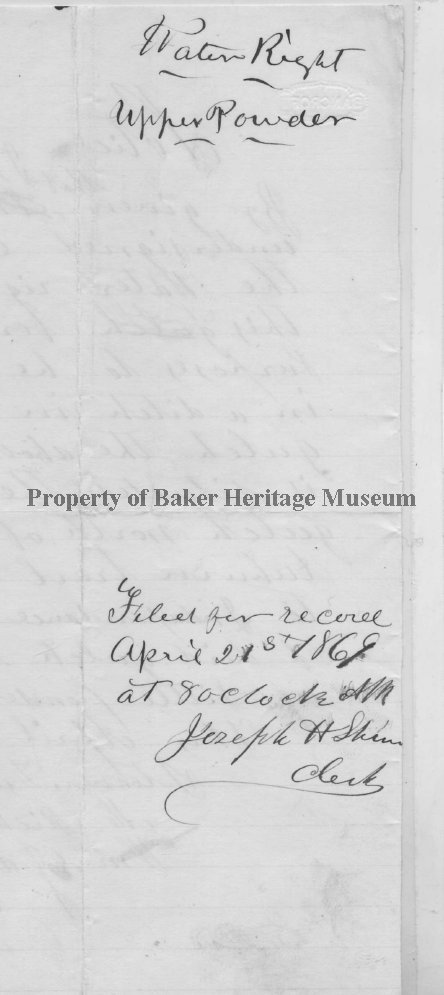 Water Right
Upper Powder
Property of Baker Heritage Museum
Filed for record
April 21st 1869
at 8 oclock AM
Joseph H Shinn
Clerk